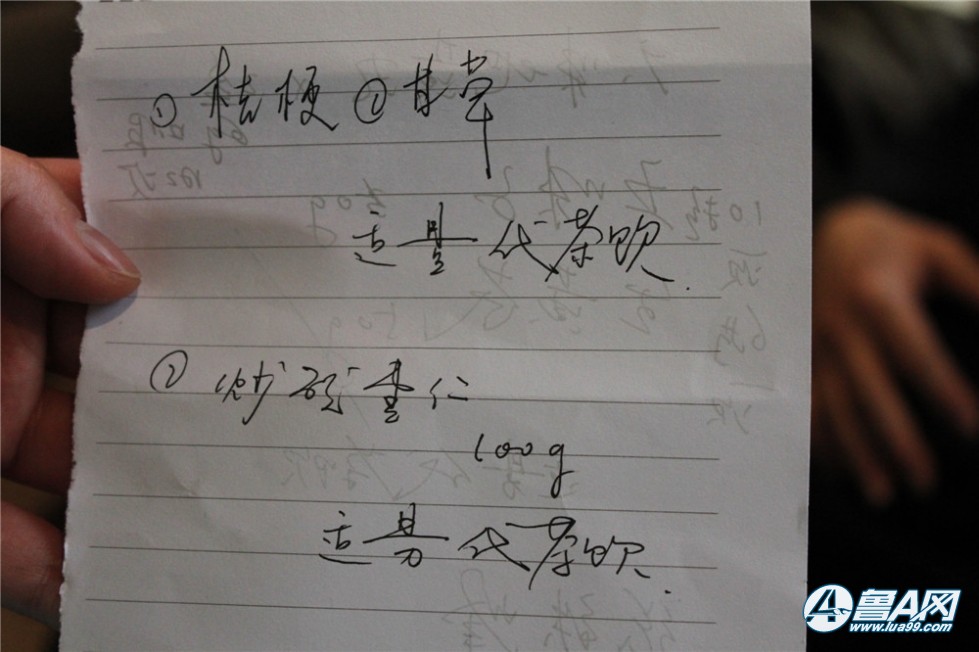 ① 桔梗 ① 甘草
适量代茶饮.
② 炒 仁
100g
适量代茶饮.
鲁A网
www.lua99.com